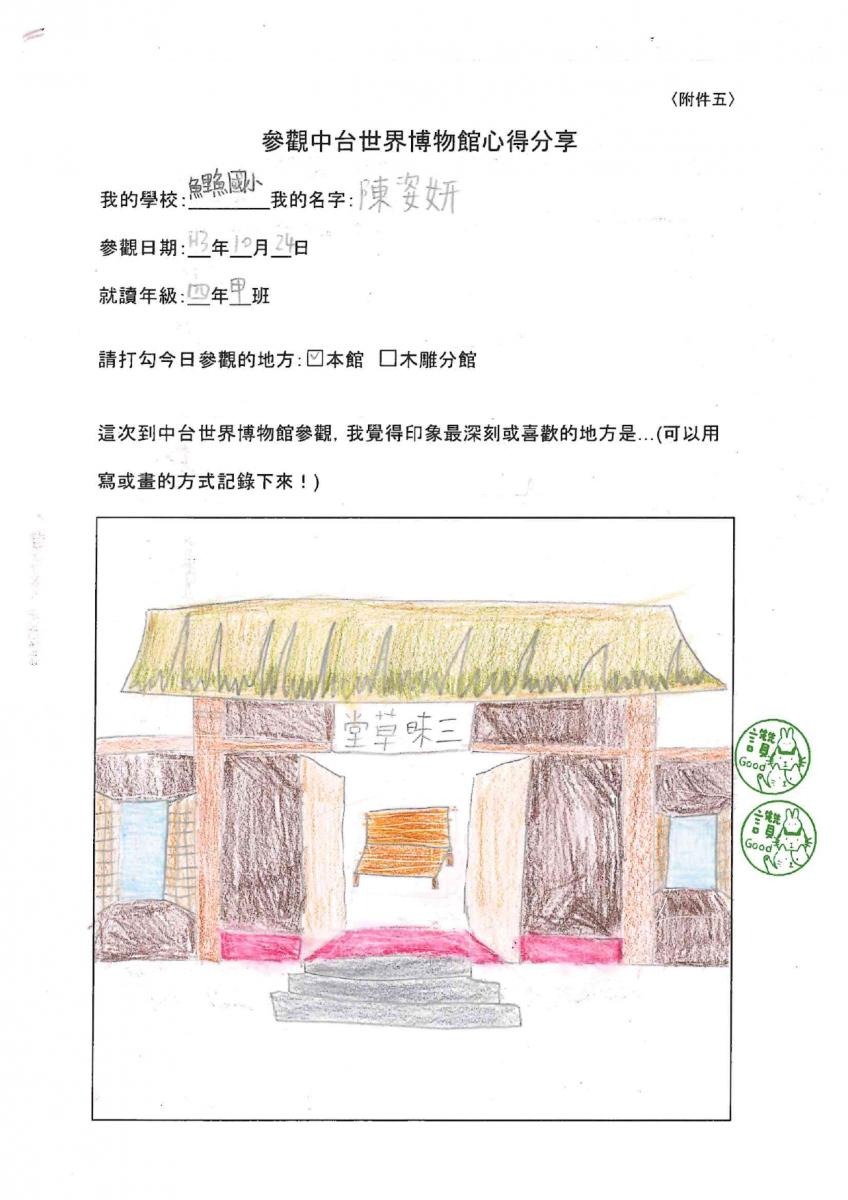 〈附件五〉
參觀中台世界博物館心得分享
我的學校:鯉魚國小我的名字:陳姿妍
參觀日期:113年10月24日
就讀年級:四年甲班
請打勾今日參觀的地方:☑本館 □木雕分館
這次到中台世界博物館參觀, 我覺得印象最深刻或喜歡的地方是…(可以用
寫或畫的方式記錄下來！)
三昧草堂
讚
Good
讚
Good